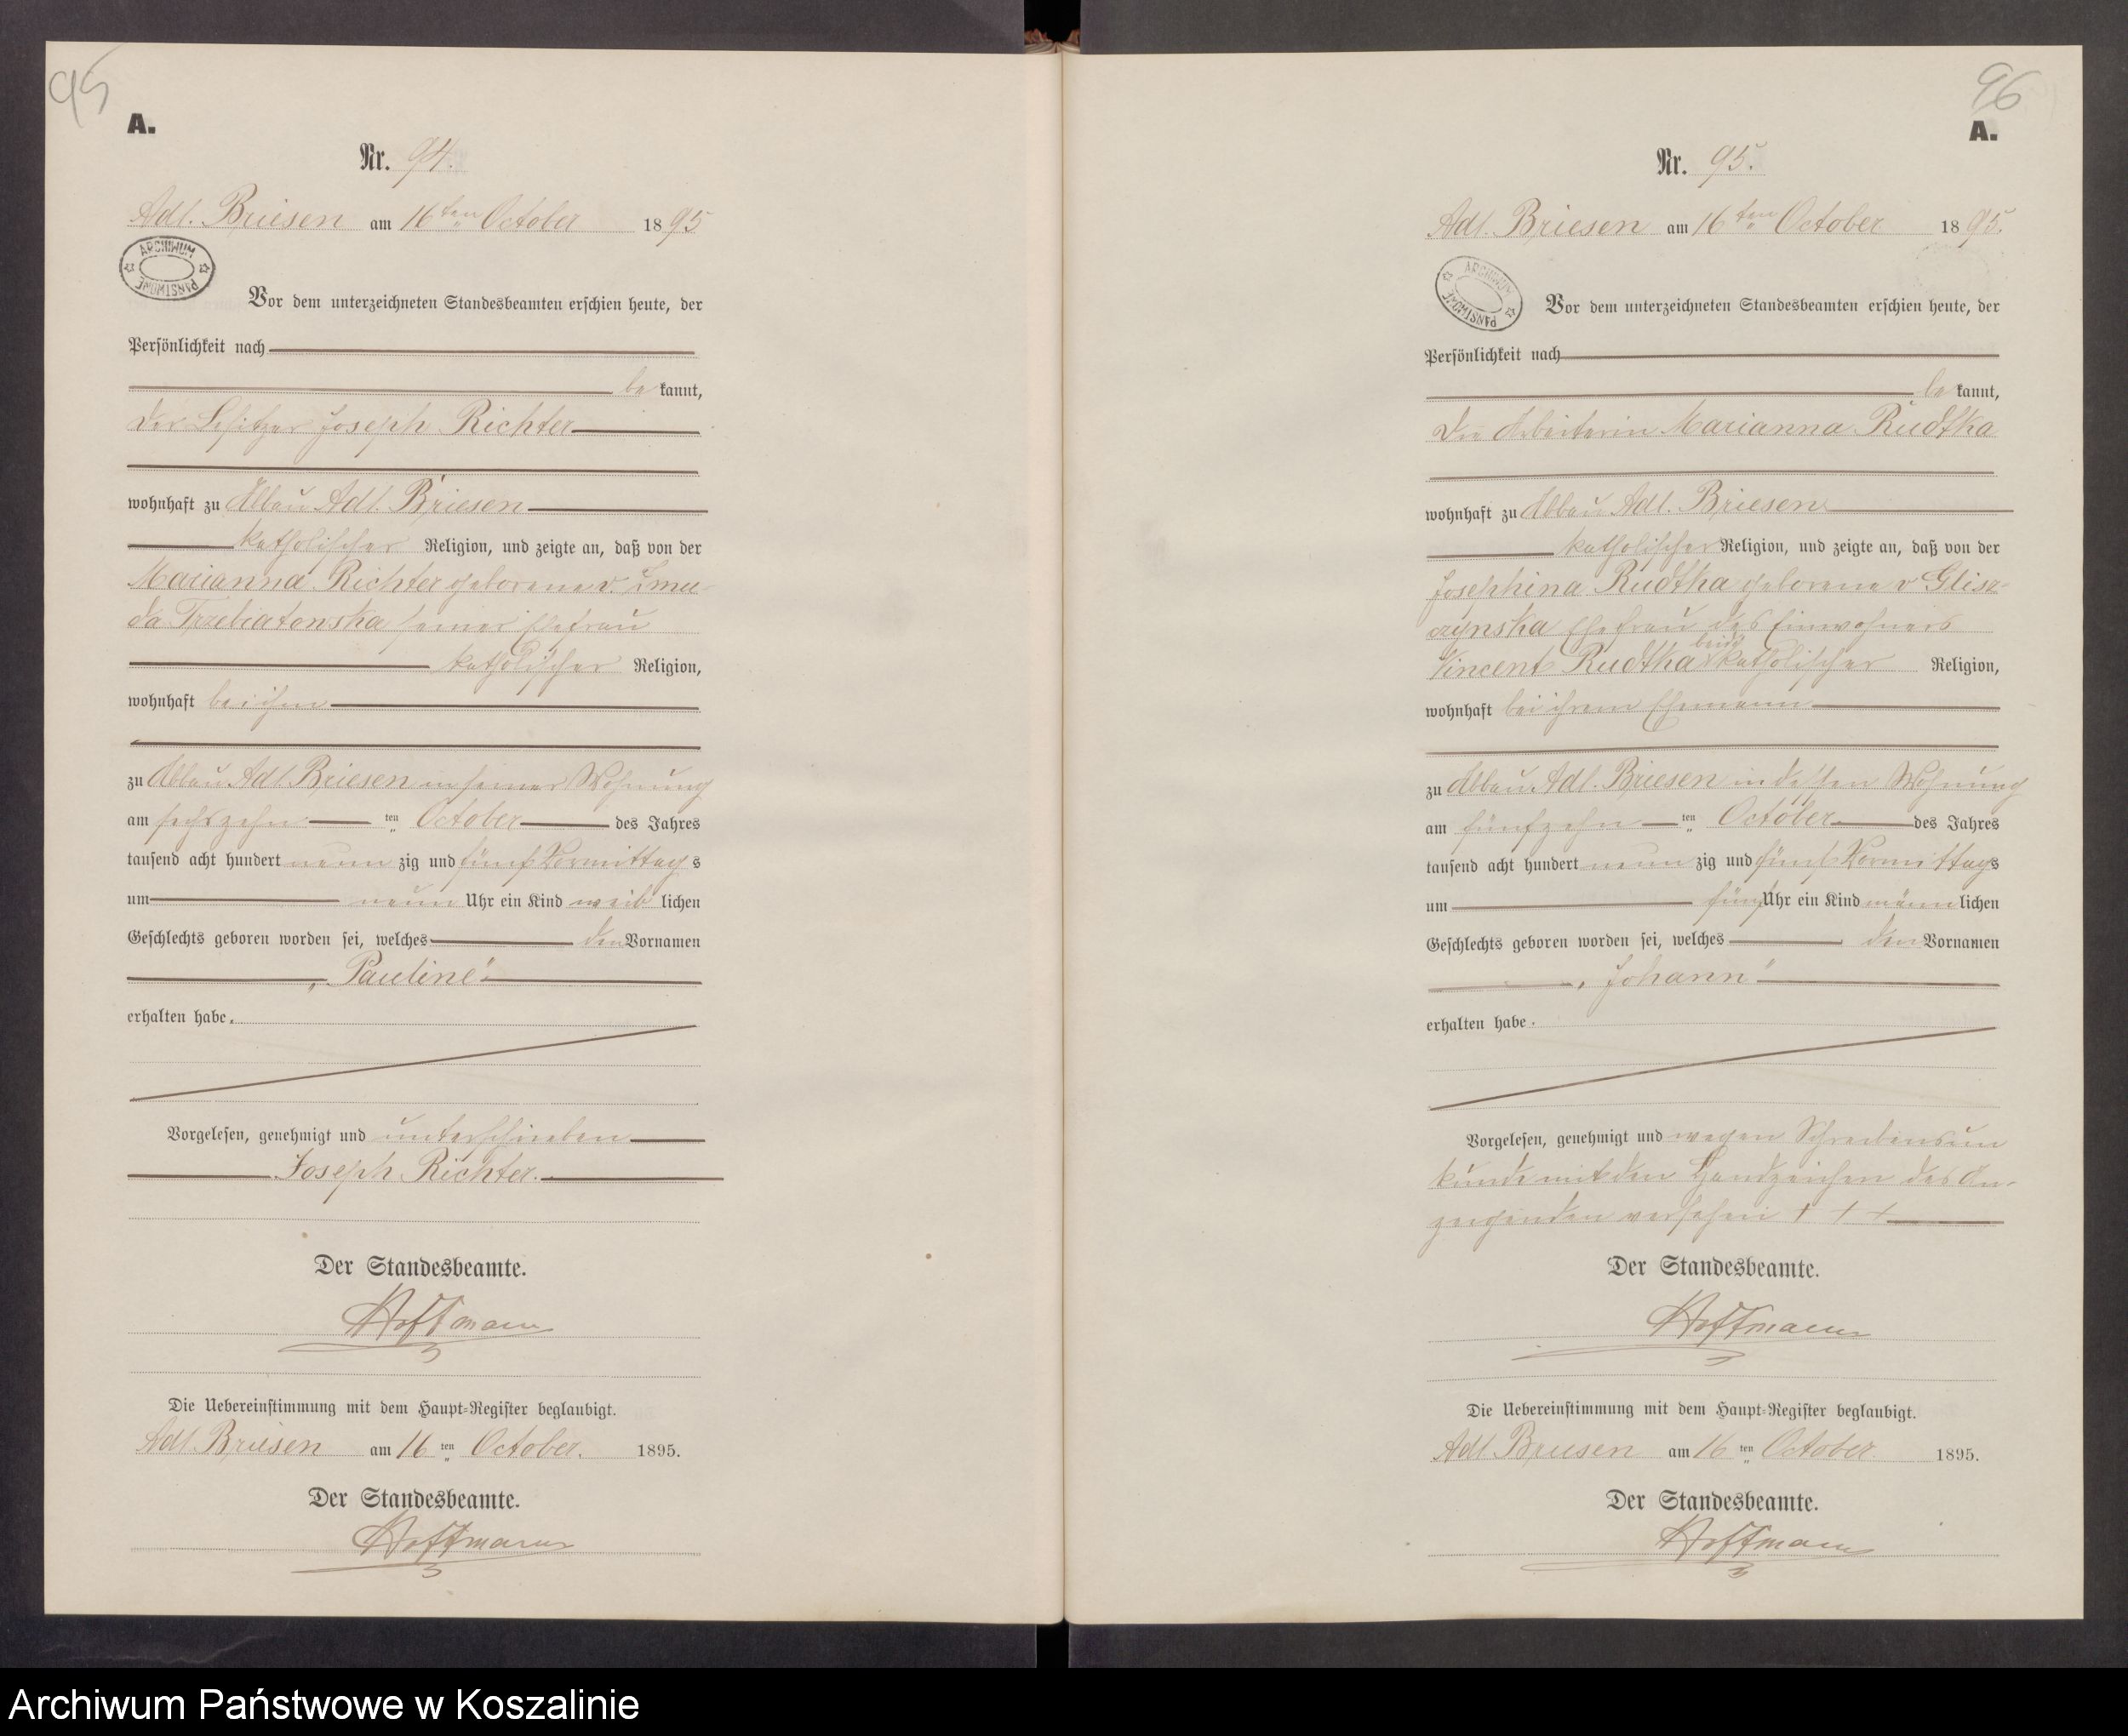 95
A.
Nr. 94.
Adl. Briesen am 16ten October 1895
ARCHIWUM PAŃSTWOWE
Vor dem unterzeichneten Standesbeamten erschien heute, der
Persönlichkeit nach
bekannt,
der Besitzer Joseph Richter
wohnhaft zu Abbau Adl. Briesen
katholischer Religion, und zeigte an, daß von der
Marianna Richter geborene v. Zmu-
da Trzebiatonska seiner Ehefrau
katholischer Religion,
wohnhaft bei ihm
zu Abbau Adl. Briesen in seiner Wohnung
am sechszehn ten October des Jahres
tausend acht hundert neunzig und fünf Vormittags
um neun Uhr ein Kind weiblichen
Geschlechts geboren worden sei, welches den Vornamen
„Pauline“
erhalten habe.
Vorgelesen, genehmigt und unterschrieben
Joseph Richter.
Der Standesbeamte.
Hoffmann
Die Uebereinstimmung mit dem Haupt-Register beglaubigt.
Adl. Briesen am 16ten October. 1895.
Der Standesbeamte.
Hoffmann
96
A.
Nr. 95.
Adl. Briesen am 16ten October 1895.
ARCHIWUM PAŃSTWOWE
Vor dem unterzeichneten Standesbeamten erschien heute, der
Persönlichkeit nach
bekannt,
die Arbeiterin Marianna Rudtka
wohnhaft zu Abbau Adl. Briesen
katholischer Religion, und zeigte an, daß von der
Josephina Rudtka geborene v Glisz-
czynska Ehefrau des Einwohners
Vincent Rudtka beide katholischer Religion,
wohnhaft bei ihrem Ehemann
zu Abbau Adl. Briesen in dessen Wohnung
am fünfzehn ten October des Jahres
tausend acht hundert neunzig und fünf Vormittags
um fünf Uhr ein Kind männlichen
Geschlechts geboren worden sei, welches den Vornamen
„Johann“
erhalten habe.
Vorgelesen, genehmigt und wegen Schreibensun
kunde mit den Handzeichen des An-
zeigenden versehen + + +
Der Standesbeamte.
Hoffmann
Die Uebereinstimmung mit dem Haupt-Register beglaubigt.
Adl. Briesen am 16ten October 1895.
Der Standesbeamte.
Hoffmann
Archiwum Państwowe w Koszalinie